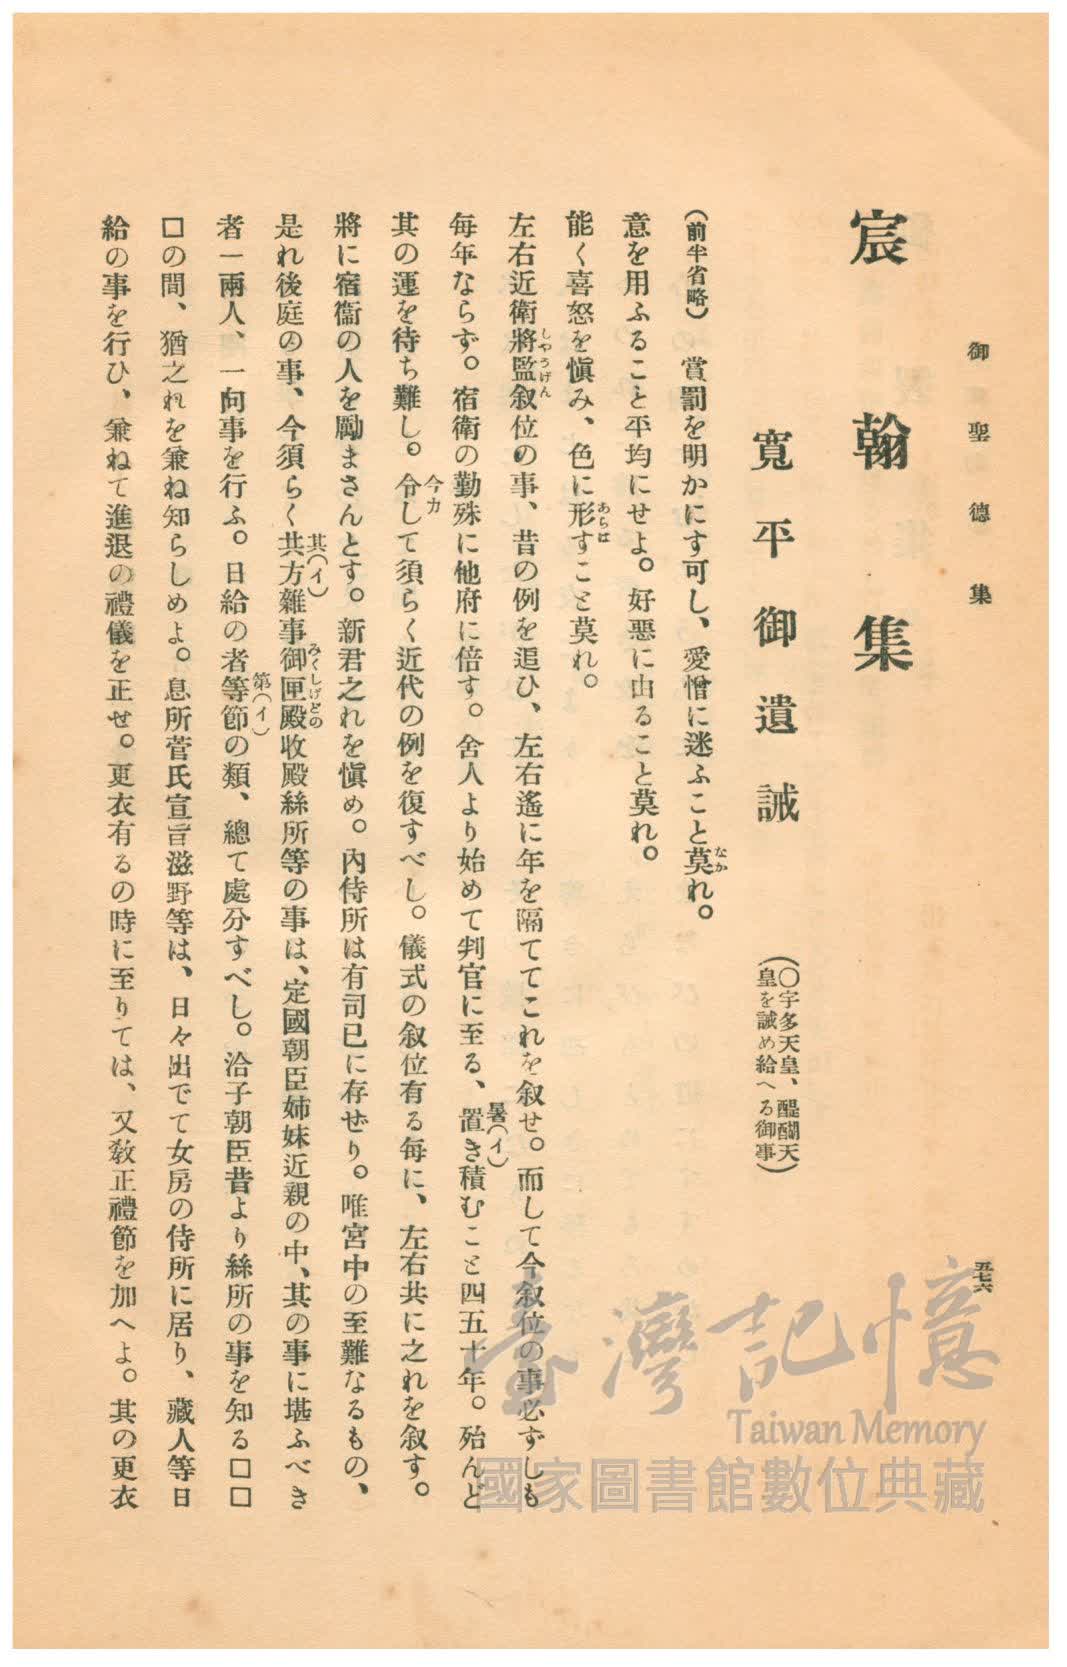 御聖德集
五七六
宸翰集
寬平御遺誡
(〇宇多天皇、醍醐天
皇を誡め給へる御事)
(前半省略) 賞罰を明かにす可し、愛憎に迷ふこと莫れ。
なか
意を用ふること平均にせよ。好惡に由ること莫れ。
能く喜怒を愼み、色に形すこと莫れ。
あらは
左右近衛將監叙位の事、昔の例を追ひ、左右遙に年を隔ててこれを叙せ。而して今叙位の事必ずしも
しやうげん
每年ならず。宿衛の勤殊に他府に倍す。舍人より始めて判官に至る、置き積むこと四五十年。殆んど
暑(イ)
其の運を待ち難し。令して須らく近代の例を復すべし。儀式の叙位有る每に、左右共に之れを叙す。
今カ
將に宿衞の人を勵まさんとす。新君之れを愼め。內侍所は有司已に存せり。唯宮中の至難なるもの、
是れ後庭の事、今須らく共方雜事御匣殿收殿絲所等の事は、定國朝臣姉妹近親の中、其の事に堪ふべき
其(イ)
みくしげどの
者一兩人、一向事を行ふ。日給の者等節の類、總て處分すべし。洽子朝臣昔より絲所の事を知る□□
第(イ)
□の間、猶之れを兼ね知らしめよ。息所菅氏宣旨滋野等は、日々出でて女房の侍所に居り、藏人等日
給の事を行ひ、兼ねて進退の禮儀を正せ。更衣有るの時に至りては、又敎正禮節を加へよ。其の更衣
臺灣記憶
Taiwan Memory
國家圖書館數位典藏